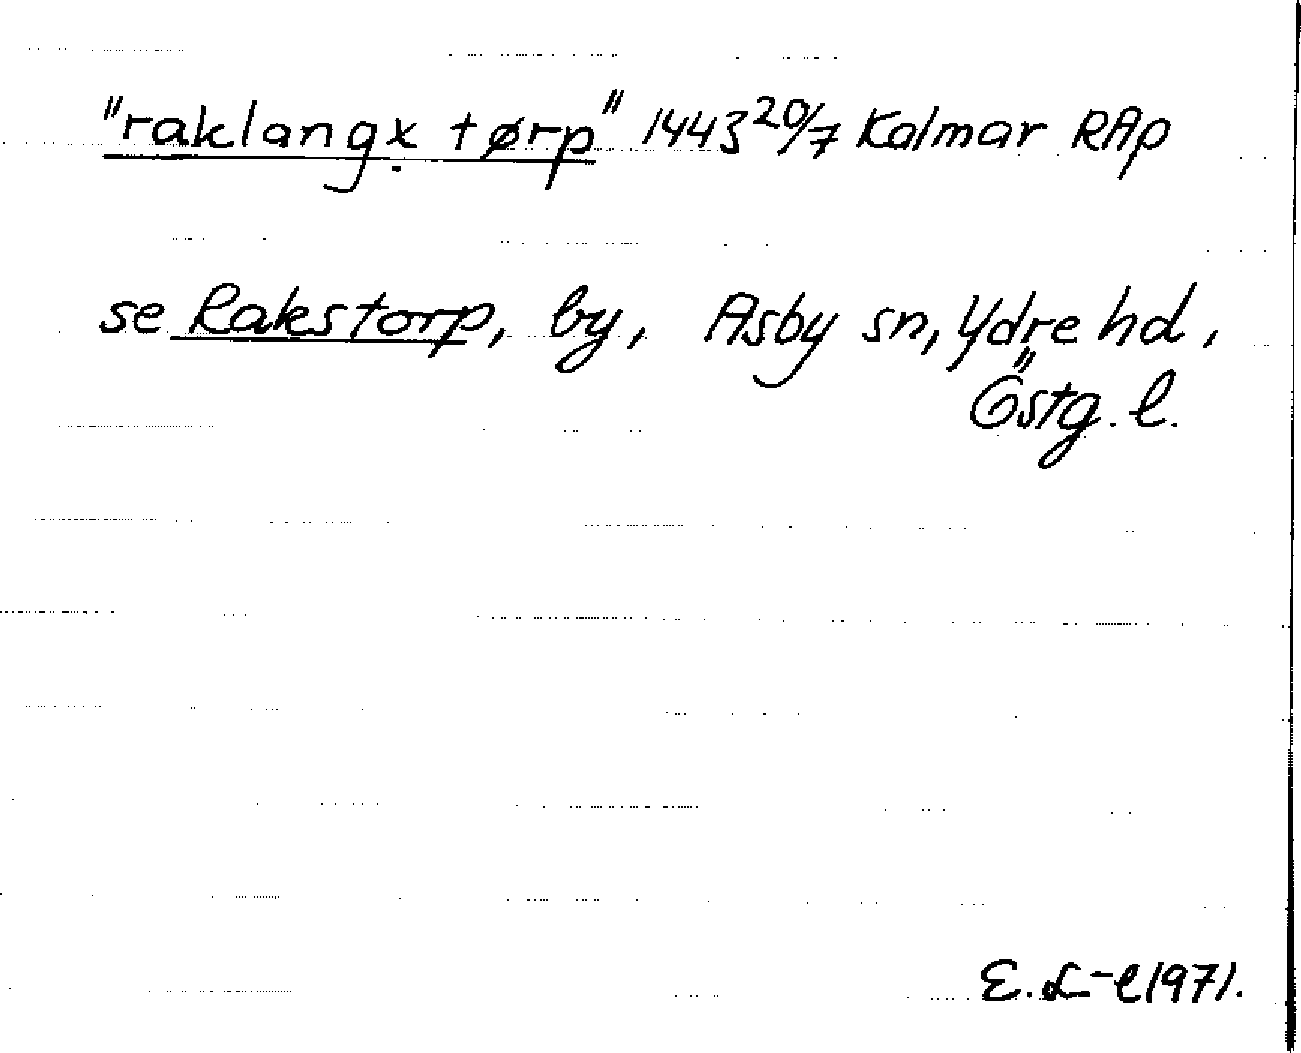 "raklangx tørp" 1443 20/7 Kalmar RAp
se Rakstorp, by, Asby sn, Ydre hd,
Östg. l.
E. L-l 1971.